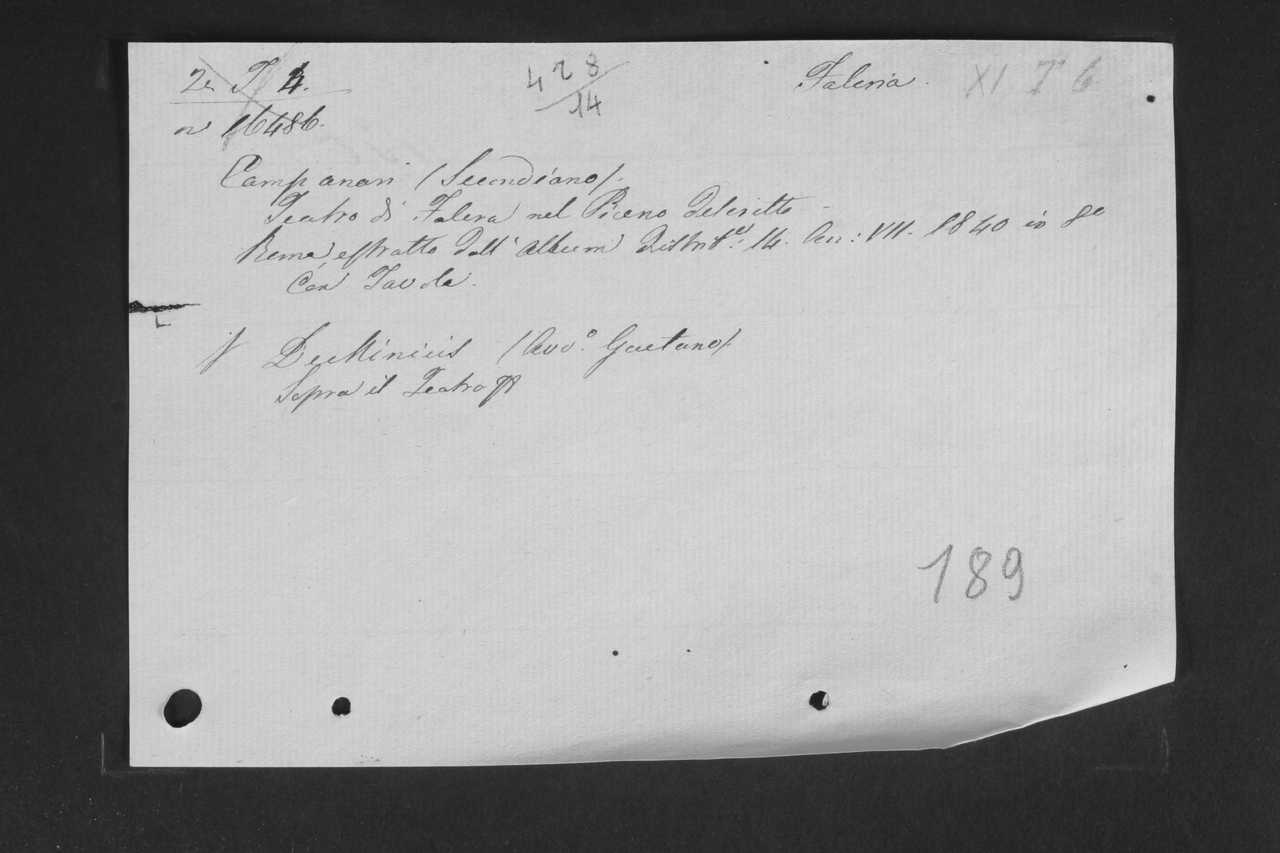 2a T 4.
428
14
Faleria. XI T 6
n 16486.
Campanari (Secondiano).
Teatro di Falera nel Piceno descritto
Roma, estratto dall' Album Distrib.e: 14. An: VII. 1840 in 8o
Con Tavola.
De Minicis (Avv.o Gaetano)
Sopra il Teatro
189